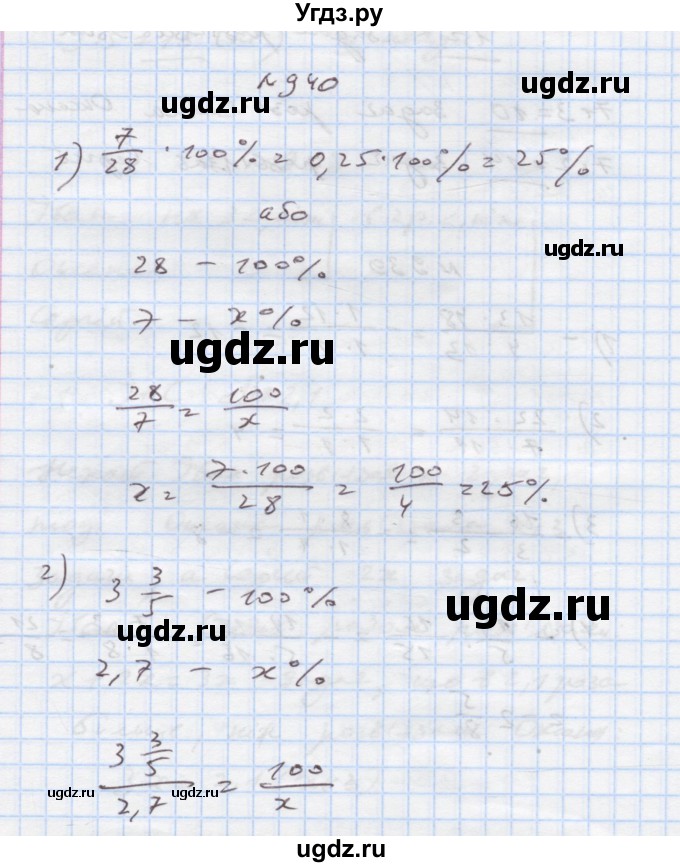 Угдз.ру
№940
ugdz.ru
ugdz.ru
1) 7/28 · 100% = 0,25·100% = 25%
або
ugdz.ru
28 – 100%
7 – x%
ugdz.ru
28/7 = 100/x
x = 7·100/28 = 100/4 = 25%
2) 3 3/5 – 100%
ugdz.ru
ugdz.ru
2,7 – x%
3 3/5 / 2,7 = 100/x
ugdz.ru
ugdz.ru
ugdz.ru